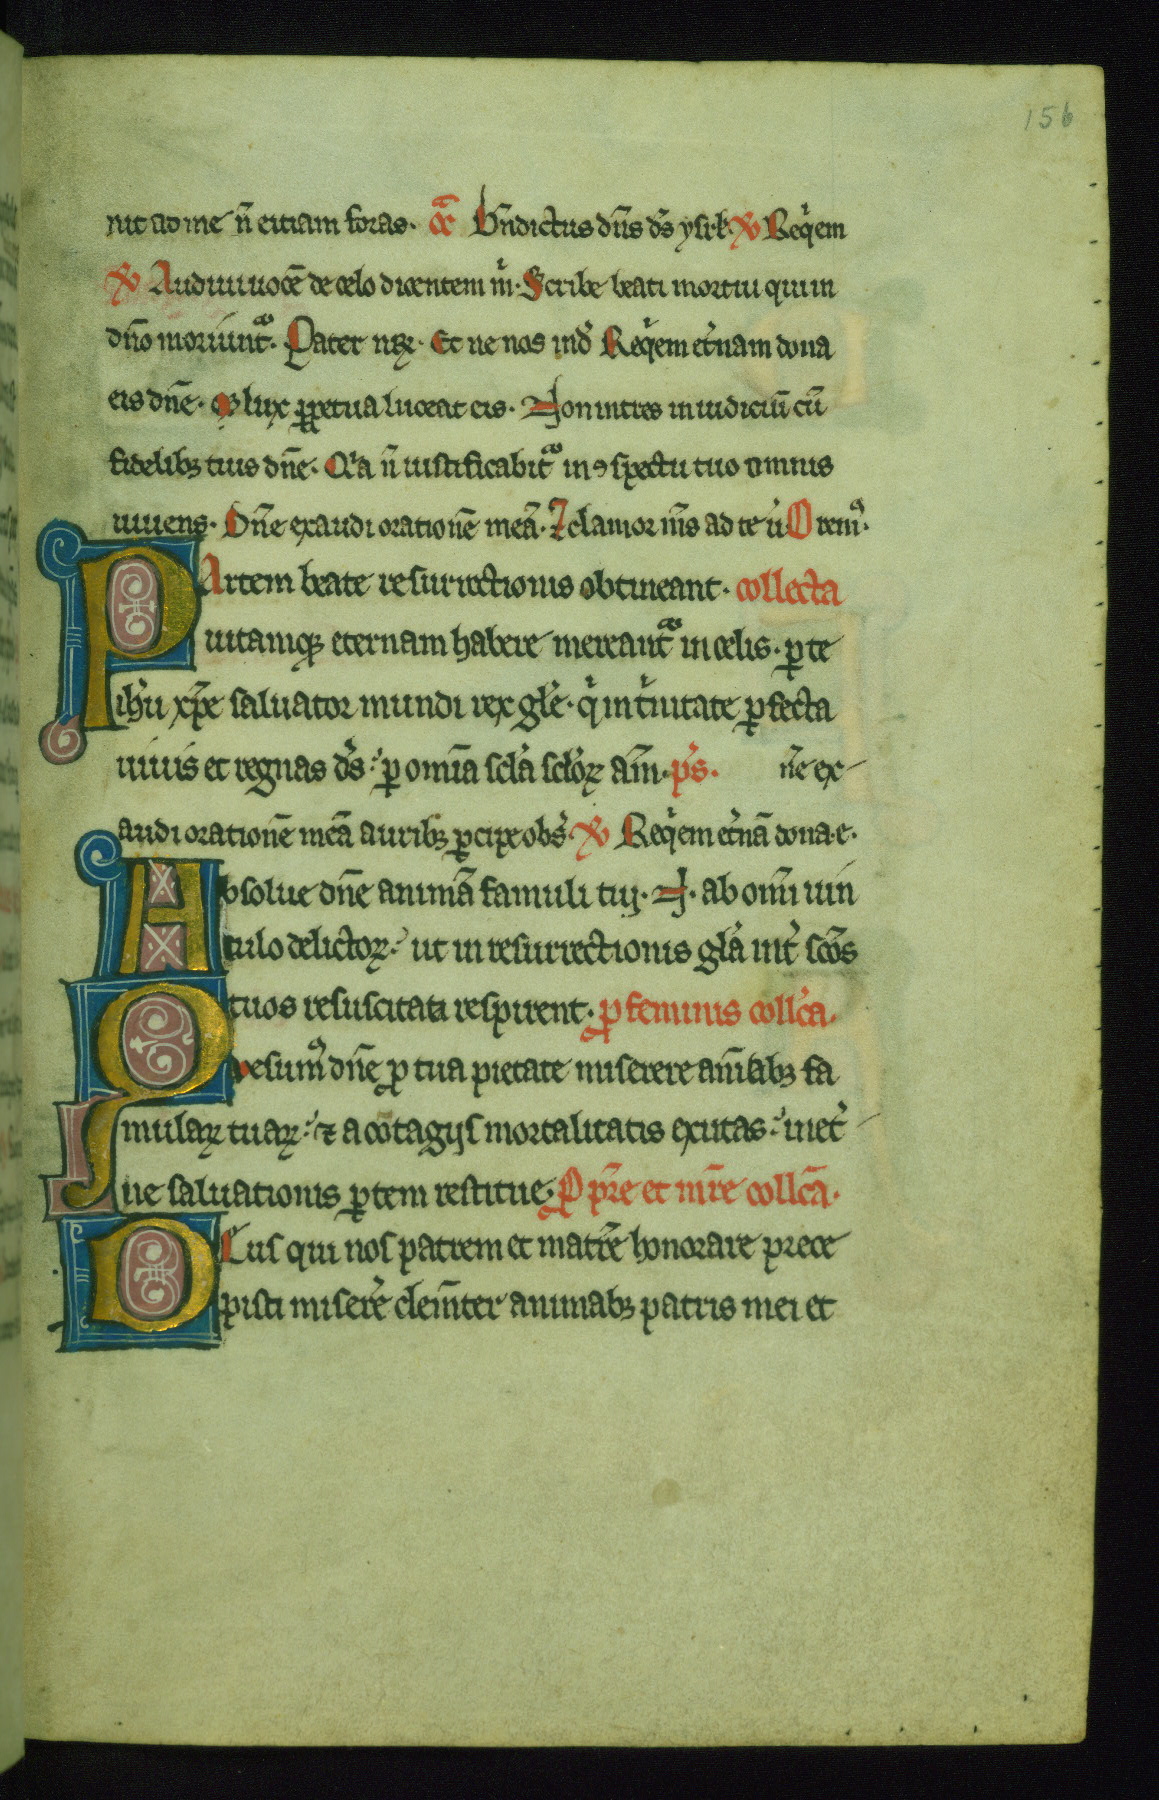 156
nit ad me n̄ eitiam foras. c̄ āc B̄ndictus dn̄s ds̄ ysrl. V Req̇em
V Audiui uocē de celo dicentem m̊. Scribe beati mortui qui in
dn̄o moriunt᷑. Pater nr̄. Et ne nos ind̊ Req̇em et̄nam dona
eis dn̄e. Et lux ꝑpetua luceat eis. Non intres in iudiciū cū
fidelibꝫ tuis dn̄e. Q'a n̄ iustificabit᷑ in ꝯspectu tuo omnis
uiuens. Dn̄e exaudi orationē meā. ⁊ clamor ms̄ ad te u̇ Orem᷒.
PArtem beate resurrectionis obtineant. collecta
uitamqꝫ eternam habere mereant᷑ in celis. ꝑ te
ih̄u xp̄e saluator mundi rex gl̄e. q̇ in t̊nitate ꝑfecta
uiuis et regnas ds̄: ꝑ omīa scl̄a scl̄oꝝ am̄. ps̄. n̄e ex
audi orationē meā auribꝫ ꝑcipe obs̄. V Req̇em et̄nā dona.e.
Absolue dn̄e animā famuli tui. N. ab omī uin
culo delictoꝝ: ut in resurrectionis gl̄a int̄ sc̄os
tuos resuscitati respirent. ꝓ feminis coll̄ca.
Qvesum᷒ dn̄e ꝓ tua pietate miserere animabꝫ fa
mulaꝝ tuaꝝ: ⁊ a cōtagijs mortalitatis exutas: in et̄
ne saluationis ꝑtem restitue. P pr̄e et mr̄e coll̄cā.
DEus qui nos patrem et matrē honorare prece
pisti miserēre clem̄ter animabꝫ patris mei et